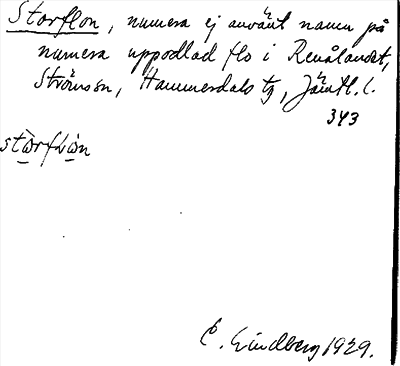 Storflon, numera ej använt namn på
numera uppodlad flo i Renålandet,
Strömsön, Hammerdals tg, Jämtl. l.
343
stωrfLωn
C. Lindberg 1929.